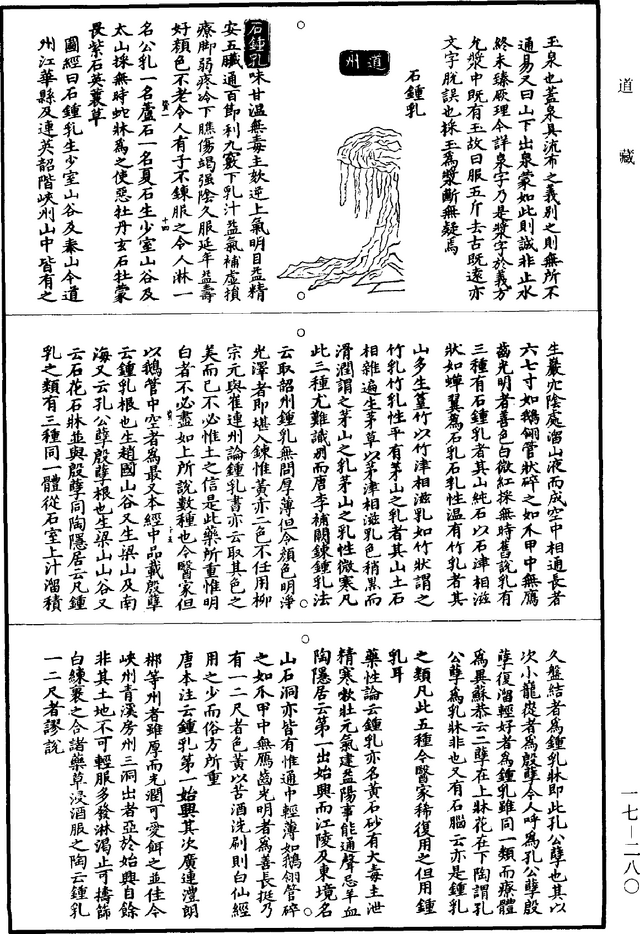 道藏
玉泉也蓋泉具流布之義別之則無所不
通易又曰山下出泉蒙如此則誠非止水
終未臻厥理今詳泉字乃是漿字於義方
允漿中既有玉故曰服五斤去古既遠亦
文字脫誤也採玉為漿斷無疑焉
石鍾乳
道州
石鍾乳味甘溫無毒主欬逆上氣明目益精
安五臟通百節利九竅下乳汁益氣補虛損
療脚弱疼冷下瞧傷竭强陰久服延年益壽
好顏色不老令人有子不鍊服之令人淋一
名公乳一名蘆石一名夏石生少室山谷及
太山採無時蛇牀為之使惡牡丹玄石牡蒙
畏紫石英蘘草
圖經曰石鍾乳生少室山谷及泰山今道
州江華縣及連英韶階峽州山中皆有之
生巖穴陰處溜山液而成空中相通長者
六七寸如鵝翎管狀碎之如爪甲中無鴈
齒光明者善色白微紅採無時舊說乳有
三種有石鍾乳者其山純石以石津相滋
狀如蟬翼為石乳石乳性溫有竹乳者其
山多生篁竹以竹津相滋乳如竹狀謂之
竹乳竹乳性平有茅山之乳者其山土石
相雜遍生茅草以茅津相滋乳色稍黑而
滑潤謂之茅山之乳茅山之乳性微寒凡
此三種尤難識別而唐李補闕鍊鍾乳法
云取韶州鍾乳無問厚薄但令顏色明淨
光澤者即堪入鍊惟黃亦二色不任用柳
宗元與崔連州論鍾乳書亦云取其色之
美而已不必惟土之信是此藥所重惟明
白者不必盡如上所說數種也今醫家但
以鵝管中空者為最又本經中品載殷孽
云鍾乳根也生趙國山谷又生梁山及南
海又云孔公孽殷孽根也生梁山山谷又
云石花石牀並與殷孽同陶隱居云凡鍾
乳之類有三種同一體從石室上汁溜積
久盤結者為鍾乳牀即此孔公孽也其以
次小龍㟅者為殷孽今人呼為孔公孽殷
孽復溜輕好者為鍾乳雖同一類而療體
為異蘇恭云二孽在上牀花在下陶謂孔
公孽為乳牀非也又有石腦云亦是鍾乳
之類凡此五種今醫家稀復用之但用鍾
乳耳
藥性論云鍾乳亦名黃石砂有大毒主泄
精寒㰸壯元氣建益陽事能通聲忌羊血
陶隱居云第一出始興而江陵及東境名
山石洞亦皆有惟通中輕薄如鵝翎管碎
之如爪甲中無鴈齒光明者為善長挺乃
有一二尺者色黃以苦酒洗刷則白仙經
用之少而俗方所重
唐本注云鍾乳第一始興其次廣連澧朗
郴等州者雖厚而光潤可愛餌之並佳今
峽州青溪房州三洞出者亞於始興自餘
非其土地不可輕服多發淋渴止可擣篩
白練裹之合諸藥草浸酒服之陶云鍾乳
一二尺者謬說
一七—二八〇